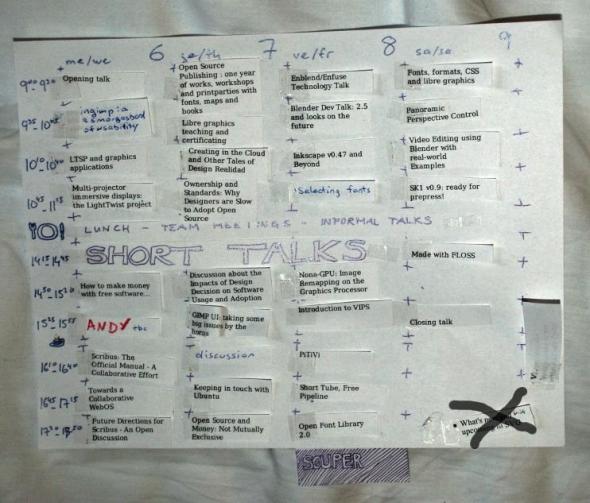 me/we 6 je/th 7 ve/fr 8 sa/sa 9
9⁰⁰-9³⁰
Opening talk
Open Source
Publishing : one year
of works, workshops
and printparties with
fonts, maps and
books
Enblend/Enfuse
Technology Talk
Fonts, formats, CSS
and libre graphics
ingimp is
a smorgasbord
of usability
Libre graphics
teaching and
certificating
Blender Dev Talk: 2.5
and looks on the
future
Panoramic
Perspective Control
LTSP and graphics
applications
Creating in the Cloud
and Other Tales of
Design Realidad
Inkscape v0.47 and
Beyond
Video Editing using
Blender with
real-world
Examples
Multi-projector
immersive displays:
the LightTwist project
Ownership and
Standards: Why
Designers are Slow
to Adopt Open
Source
Selecting fonts
SK1 v0.9: ready for
prepress!
LUNCH - TEAM MEETINGS - INFORMAL TALKS
14¹⁵-14⁴⁵
SHORT TALKS
Made with FLOSS
How to make money
with free software...
Discussion about the
Impacts of Design
Decision on Software
Usage and Adoption
Nona-GPU: Image
Remapping on the
Graphics Processor
15²⁵-15⁵⁵
ANDY tbc
GIMP UI: taking some
big issues by the
horns
Introduction to VIPS
Closing talk
16¹⁰-16⁴⁰
Scribus: The
Official Manual - A
Collaborative Effort
discussion
PiTiVi
16⁴⁵-17¹⁵
Towards a
Collaborative
WebOS
Keeping in touch with
Ubuntu
Short Tube, Free
Pipeline
Future Directions for
Scribus - An Open
Discussion
Open Source and
Money: Not Mutually
Exclusive
Open Font Library
2.0
What's
upcoming
SCUPER